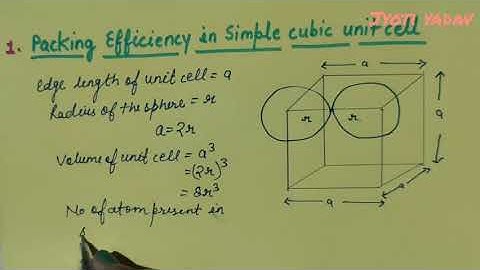 JYOTI YADAV
1. Packing Efficiency in Simple cubic unit cell
Edge length of unit cell = a
Radius of the sphere = r
a = 2r
Volume of unit cell = a³
= (2r)³
= 8r³
No of atom present in
a
a
r
r
a
a